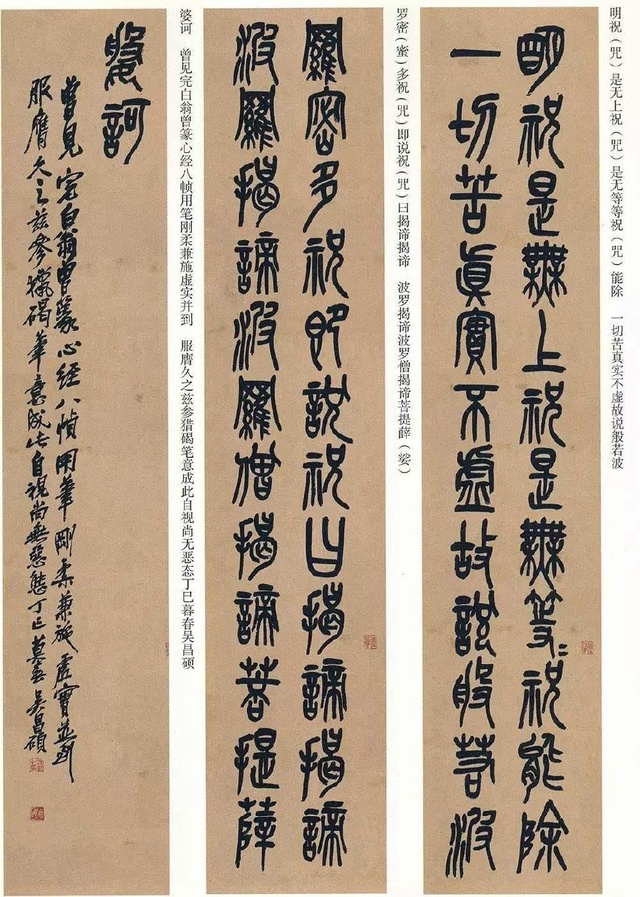 明祝（咒）是无上祝（咒）是无等等祝（咒）能除　一切苦真实不虚故说般若波
明祝是無上祝是無等〻祝能除
一切苦眞實不虛故說般若波
罗密（蜜）多祝（咒）即说祝（咒）曰揭谛揭谛　波罗揭谛波罗僧揭谛菩提薛（娑）
羅密多祝即說祝曰揭諦揭諦
波羅揭諦波羅僧揭諦菩提薛
婆诃　曾见完白翁曾篆心经八帧用笔刚柔兼施虚实并到　服膺久之兹参猎碣笔意成此自视尚无恶态丁巳暮春吴昌硕
婆訶
曾見完白翁曾篆心經八幀用筆剛柔兼施虛實並到
服膺久之茲參獵碣筆意成此自視尚無惡態丁巳莫春吳昌碩